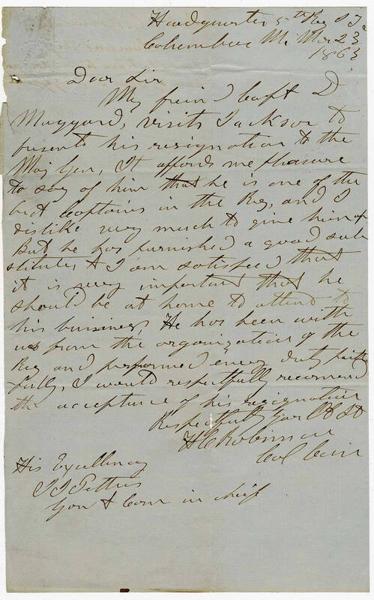 Headquarters 5th Reg S T
Columbus Mi Mar 23
1863
Dear Sir
My freind Capt D
Maggard, visits Jackson to
presente his resignation to the
Maj Gen, It affords me pleasure
to say of him that he is one of the
best Captains in the Reg, and I
dislike very much to give him up
But he has furnished a good sub
stitute, & I am satisfied that
it is very important that he
should be at home to attend to
his business He has been with
us from the organization of the
Reg and performed every duty faith
fully, I would respectfully recomend
the acceptance of his resignation
Respectfully Your Ob St
H C Robinson
Col Com
His Excellency
J J Pettus
Gov & Com in chief